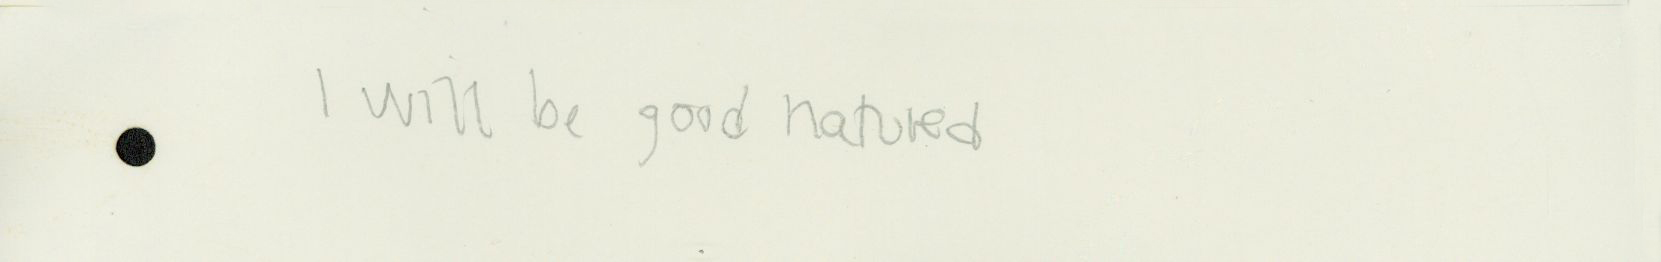 I will be good natured